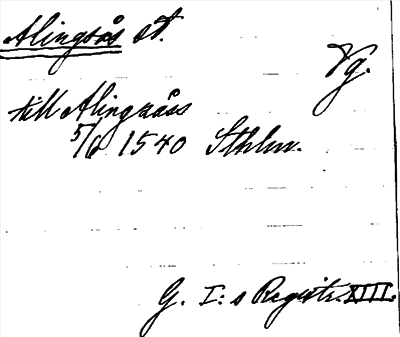 Alingsås st.
Vg.
till Alingsåss
5/6 1540 Sthlm.
G. I:s Registr. XIII.